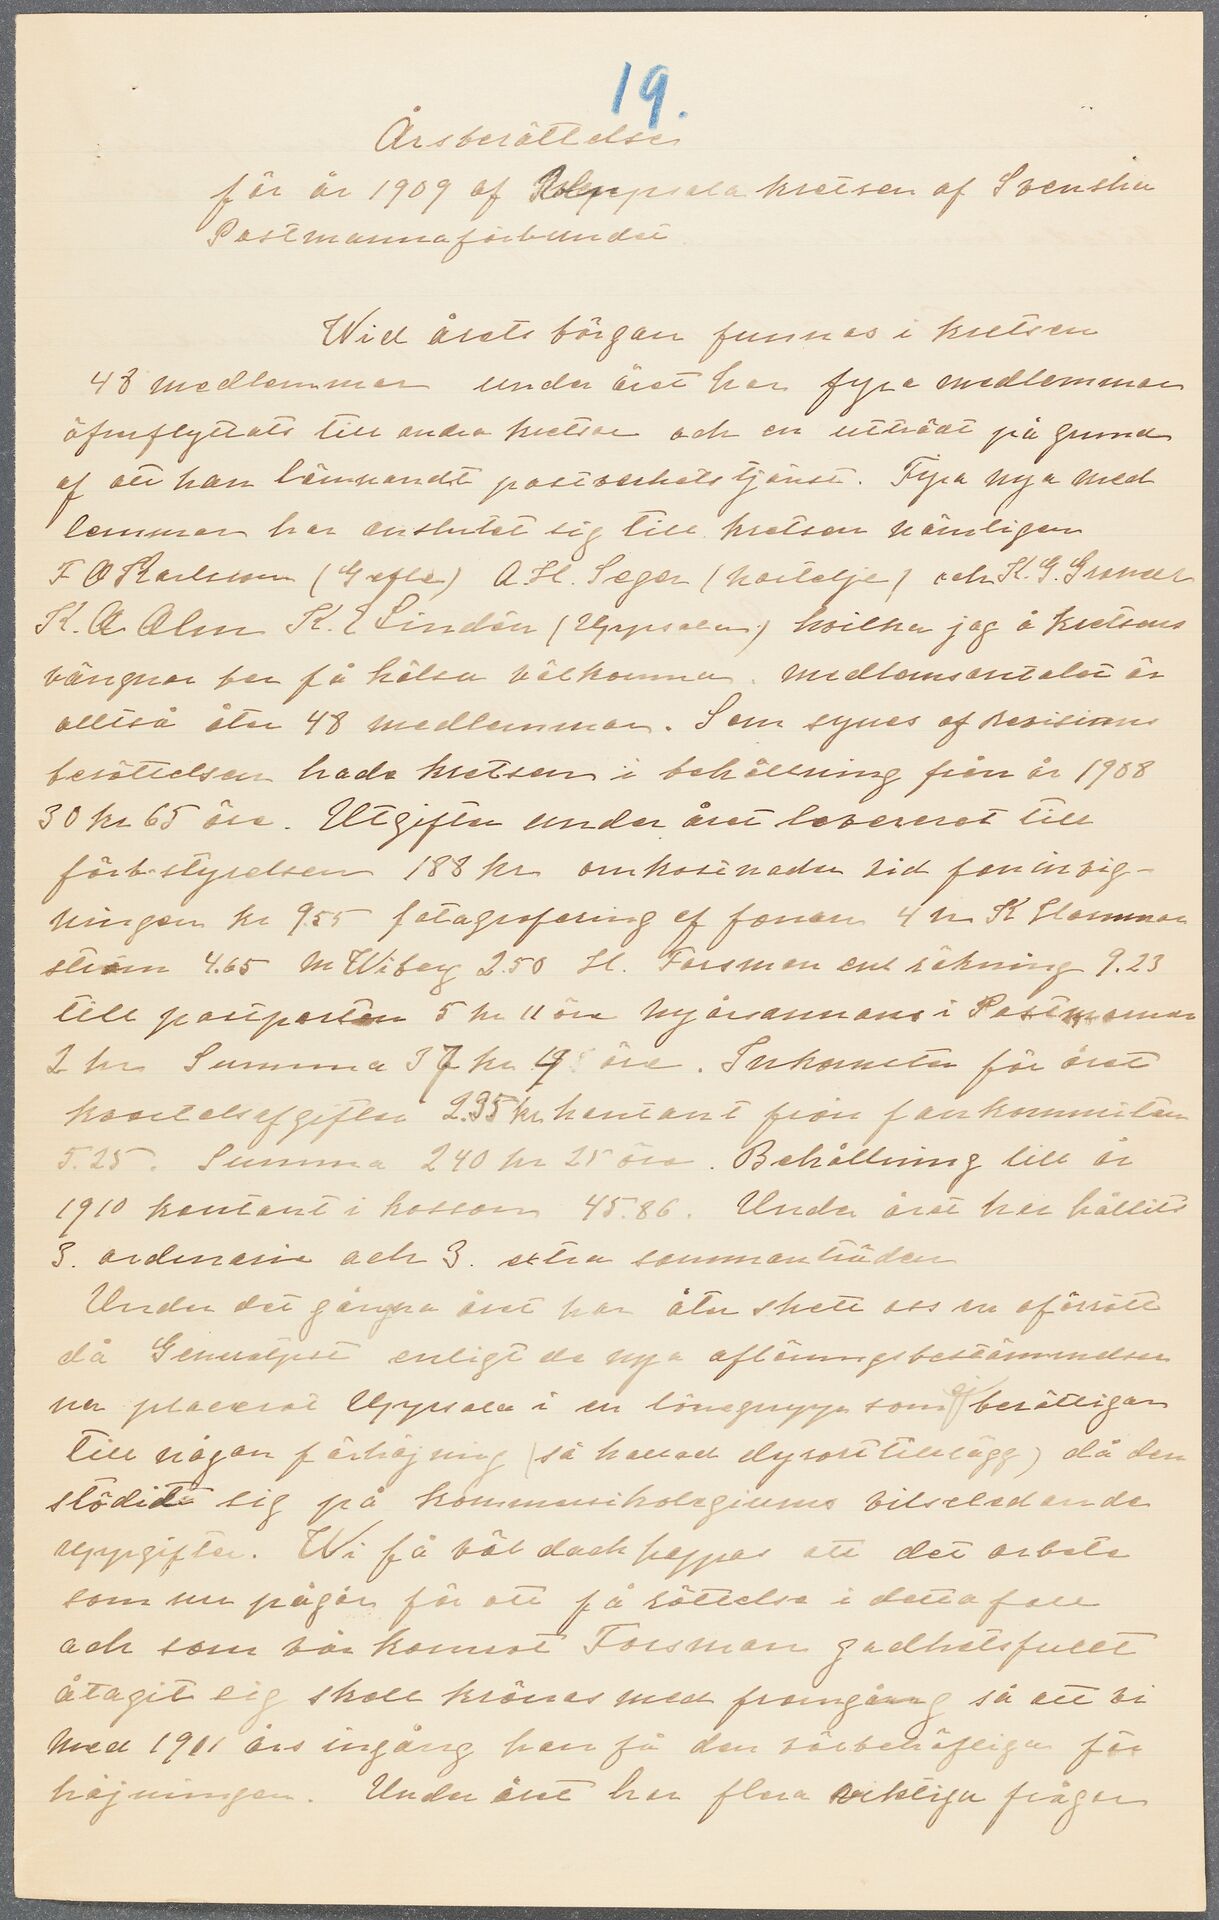 19.
Årsberättelse
för år 1909 af Uppsala kretsen af Svenska
Postmannaförbundet
Wid årets börgan funnos i kretsen
48 medlemmar under året har fyra medlemmar
öfverflyttats till andra kretsar och en utträdt på grund
af att han lämnandt postverkets tjänst. Fyra nya med
lemmar har anslutet sig till kretsen nämligen
F O Karlsson (Gefle) A.H. Seger (Nortelje) och K.G. Granér
K. A. Alm K. E Lindén (Uppsala) hvilka jag å kretsens
vängnar ber få hälsa välkomna. Medlemsantalet är
alltså åter 48 medlemmar. Som synes af revisions
berättelsen hade kretsen i behållning från år 1908
30 kr 65 öre. Utgifter under året levererat till
förb.styrelsen 188 kr omkostnader vid faninvig-
ningen kr 9.55 fotografering af fanan 4 kr K Hammar
ström 4.65 M Wiberg 2.50 H. Forsman enl räkning 9.23
till postposten 5 kr 11 öre nyårsannons i Postmannen
2 kr Summa 37 kr öre. Inkomster för året
kvartalsafgifter 2.35 kr. kontant från fankommiten
5.25. Summa 240 kr 25 öre. Behållning till år
1910 kontant i kassan 45.86. Under året har hållits
3. ordinarie och 3. extra sammanträden
Under det gångna året har åter skett oss en oförrätt
då Generalpst enligt de nya aflöningsbestämmelser
na placerat Uppsala i en lönegrupp som ej berättigar
till någon förhöjning (så kallad dyrorttillägg) då den
stödidt sig på kommerskolegiums vilseledande
uppgifter. Wi få väl dock hoppas att det arbete
som nu pågår för att få rättelse i detta fall
och som vår kamrat Forsman godhetsfullt
åtagit sig skall krönas med framgång så att vi
med 1911 års ingång kan få den välbehöfliga för
höjningen. Under året har flera viktiga frågor